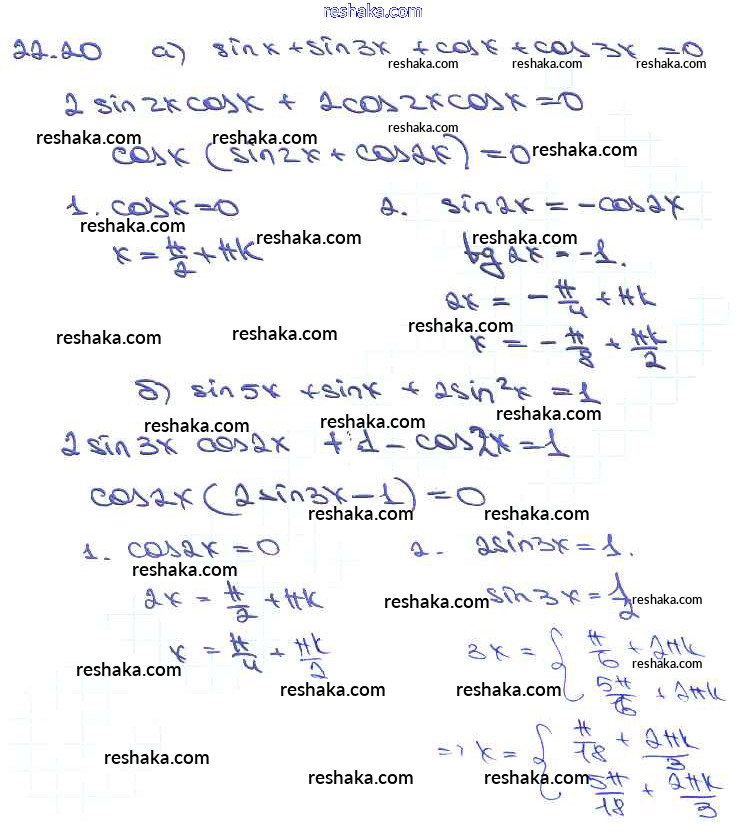 reshaka.com
22.20 а) sinx + sin3x + cosx + cos3x = 0
reshaka.com reshaka.com reshaka.com
2 sin2x cosx + 2cos2x cosx = 0
reshaka.com reshaka.com reshaka.com
cosx (sin2x + cos2x) = 0 reshaka.com
1. cosx = 0 2. sin2x = -cos2x
reshaka.com reshaka.com reshaka.com
x = π/2 + πk tg2x = -1.
2x = -π/4 + πk
reshaka.com reshaka.com reshaka.com reshaka.com
x = -π/8 + πk/2
б) sin5x + sinx + 2sin²x = 1
reshaka.com reshaka.com reshaka.com
2 sin3x cos2x + 1 - cos2x = 1
cos2x (2sin3x - 1) = 0
reshaka.com reshaka.com
1. cos2x = 0 2. 2sin3x = 1.
reshaka.com
2x = π/2 + πk sin3x = 1/2
reshaka.com reshaka.com
x = π/4 + πk/2 3x = { π/6 + 2πk
reshaka.com reshaka.com
5π/6 + 2πk
reshaka.com reshaka.com
=> x = { π/18 + 2πk/3
reshaka.com
5π/18 + 2πk/3
reshaka.com reshaka.com